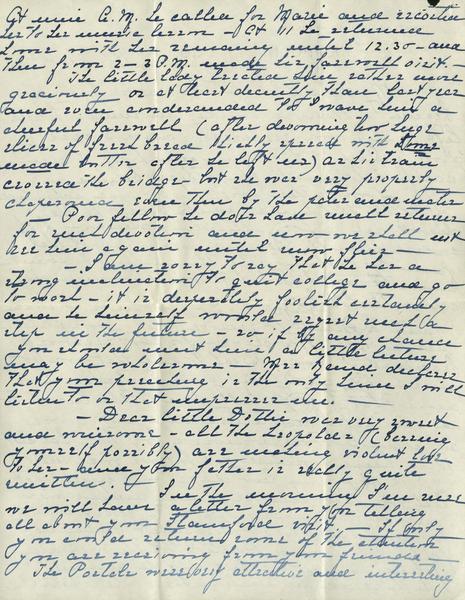 At nine A.M. he called for Marie and escorted
her to her music lesson - At 11 he returned
home with her remaining until 12.30 - and
then from 2 - 3 P.M. made his farewell visit. -
- The little lady treated him rather more
graciously or at least decently than last year
and even condescended to wave him a
cheerful farewell (after devouring two huge
slices of fresh bread thickly spread with home
made butter after he left us) as his train
crossed the bridge - but she was very properly
chaperoned even then by the pater and mater
- Poor fellow he does have small returns
for such devotion and now we shall not
see him again until snow flies -
- I am sorry to say that he has a
strong inclination to quit college and go
to work - it is desperately foolish certainly
and he himself would regret such a
step in the future - so if by any chance
you should meet him a little lecture
may be wholesome -
that your preaching is the only kind I will
listen to or that impresses me. -
- Dear little Dottie was very sweet
and winsome - all the Leopolds (barring
yourself possibly) are making violent love
to her - and your father is really quite
smitten. -
In the morning I'm sure
we will have a letter from you telling
all about your Stamford visit. - If only
you could return some of the attention
you are receiving from your friends -
The Portals were very attractive and interesting